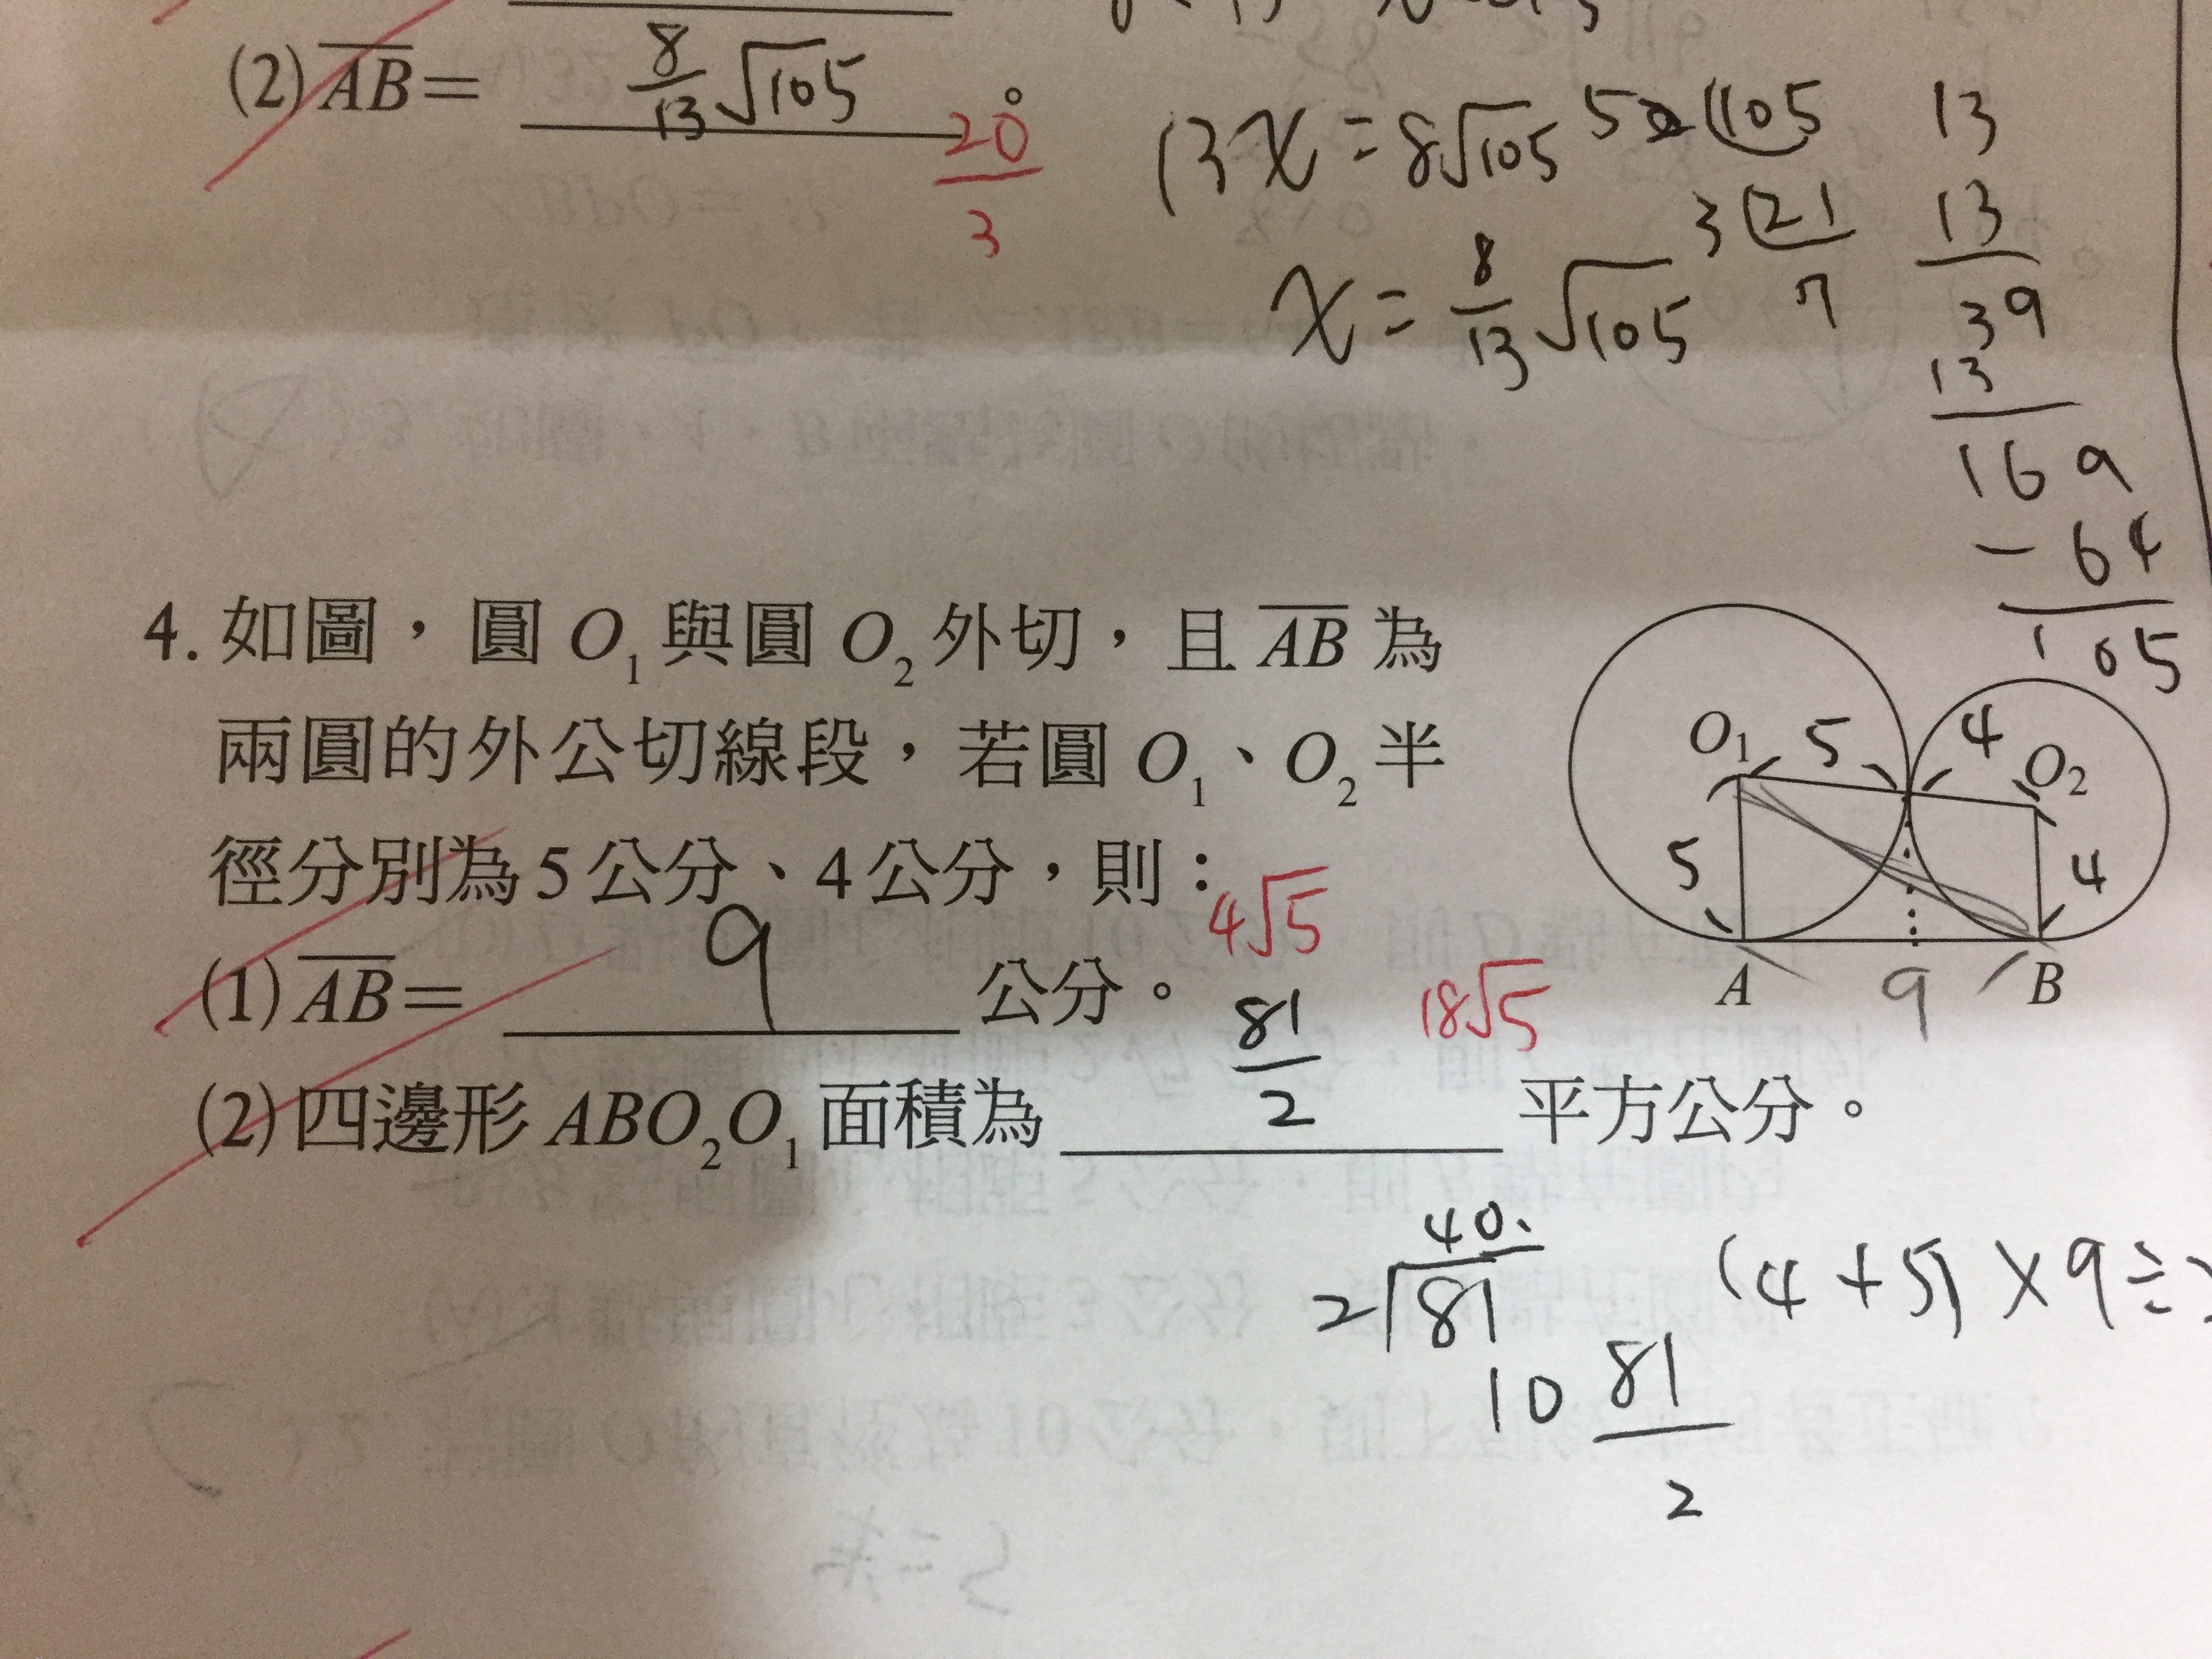 (2) AB = 8/13 √105 。
20/3
13x = 8√105
x = 8/13 √105
5 105
3 21
7
13
13
39
13
169
- 64
105
4. 如圖，圓 O₁ 與圓 O₂ 外切，且 AB 為
兩圓的外公切線段，若圓 O₁、O₂ 半
徑分別為 5 公分、4 公分，則：
(1) AB = 9 公分。
4√5
(2) 四邊形 ABO₂O₁ 面積為 81/2 平方公分。
18√5
O₁ 5 4 O₂
5 4
A 9 B
40.
2 81
10
(4+5)×9÷
81/2